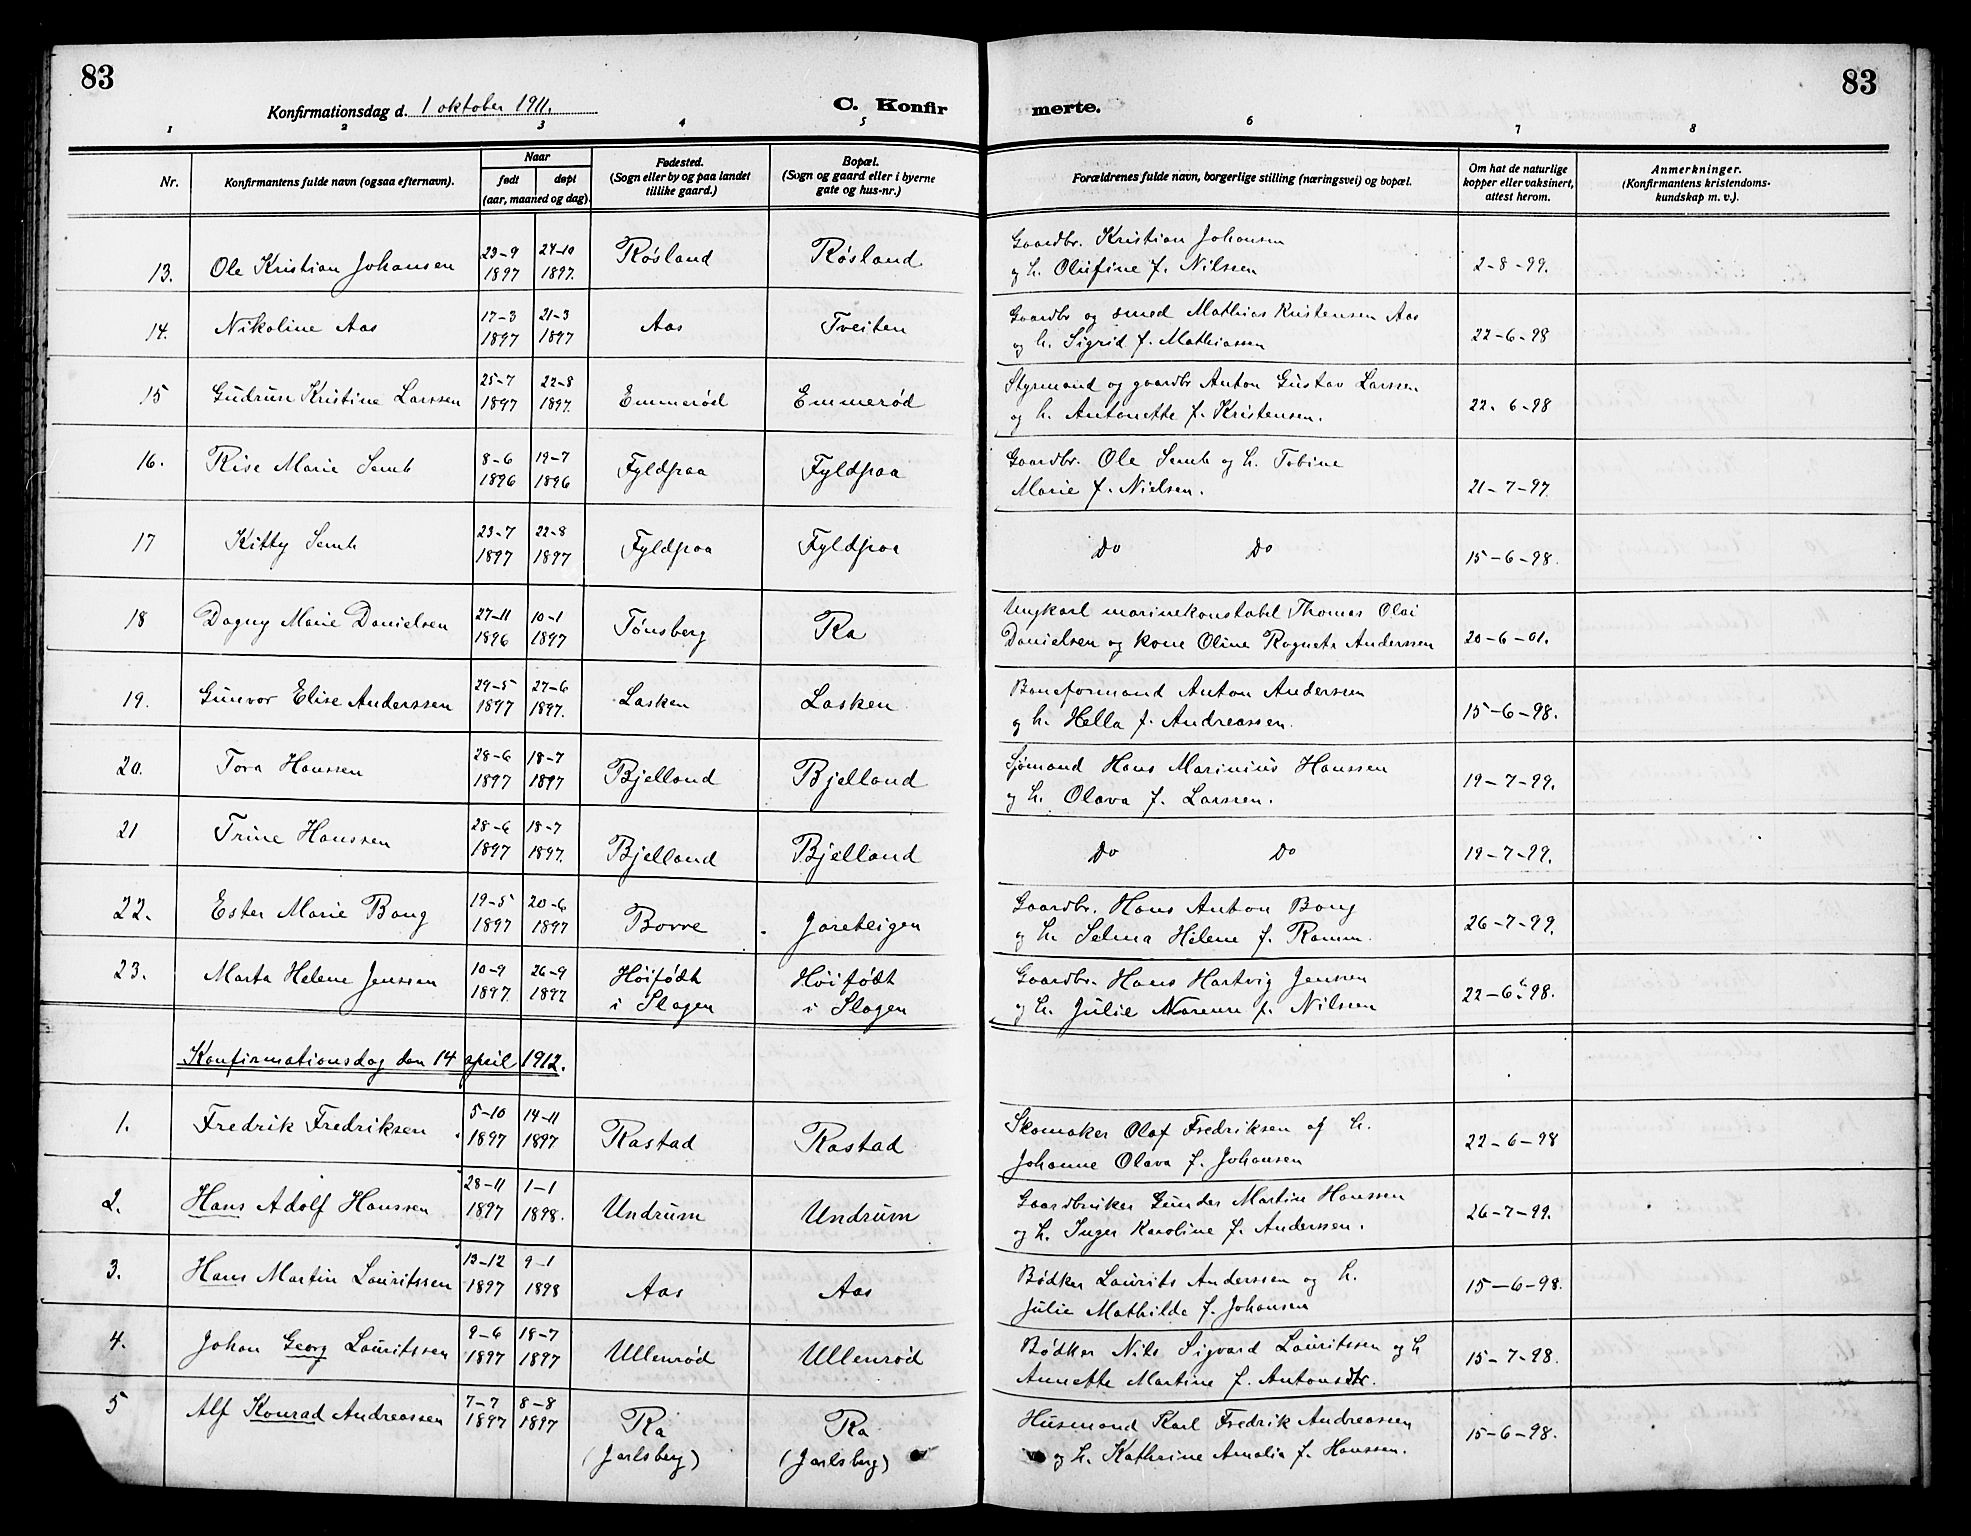 83
83
Konfirmationsdag d. 1 oktober 1911.
C. Konfir
merte.
1 2 3 4 5 6 7 8
Nr.
Konfirmantens fulde navn (ogsaa efternavn).
Naar
født
døpt
(aar, maaned og dag).
Fødested.
(Sogn eller by og paa landet
tillike gaard.)
Bopæl.
(Sogn og gaard eller i byerne
gate og hus-nr.)
Forældrenes fulde navn, borgerlige stilling (næringsvei) og bopæl.
Om hat de naturlige
kopper eller vaksinert,
attest herom.
Anmerkninger.
(Konfirmantens kristendoms-
kundskap m. v.).
13. Ole Kristian Johansen 23-9 1897 24-10 1897. Røsland Røsland
Gaardbr. Kristian Johansen
og h. Olufine f. Nilssen 2-8-99.
14. Nikoline Aas 17-3 1897 21-3 1897 Aas Tveiten
Gaardbr og smed Mathias Kristensen Aas
og h. Sigrid f. Mathiassen 22-6-98
15 Gudrun Kristine Larssen 25-7 1897 22-8 1897. Emmerød Emmerød
Styrmand og gaardbr Anton Gustav Larssen
og h. Antonette f. Kristensen. 22-6-98
16. Rise Marie Semb 8-6 1896 19-7 1896 Fyldpaa Fyldpaa
Gaardbr. Ole Semb og h. Tobine
Marie f. Nielsen. 21-7-97
17 Kitty Semb 23-7 1897 22-8 1897 Fyldpaa Fyldpaa
Do Do 15-6-98.
18 Dagny Marie Danielsen 27-11 1896 10-1 1897 Tønsberg Ra
Ungkarl marinekonstabl Thomas Olai
Danielsen og kone Oline Rogneta Anderssen 20-6-01.
19. Gunvor Elise Anderssen 29-5 1897 27-6 1897. Lasken Lasken
Baneformand Anton Andersen
og h. Hella f. Andreassen. 15-6-98.
20. Tora Hanssen 28-6 1897 18-7 1897 Bjelland Bjelland
Sjømand Hans Marinius Hanssen
og h. Olava f. Larssen. 19-7-99.
21 Trine Hanssen 28-6 1897 18-7 1897. Bjelland Bjelland
Do Do 19-7-99.
22. Ester Marie Bang 19-5 1897 20-6 1897 Borre Jareteigen
Gaardbr. Hans Anton Bang
og h. Selma Helene f. Ramm. 26-7-99.
23. Marta Helene Jenssen 10-9 1897. 26-9 1897 Høifødt
i Slagen Høifødt
i Slagen
Gaardbr. Hans Hartvig Jenssen
og h. Julie Norense f. Nilsen 22-6-98.
Konfirmationsdag den 14 april 1912.
1. Fredrik Fredriksen 5-10 1897 14-11 1897 Rastad Rastad
Skomaker Olaf Fredriksen og h.
Johanne Olava f. Johansen 22-6-98
2. Hans Adolf Hanssen 28-11 1897 1-1 1898. Undrum Undrum
Gaardbruker Gunder Martin Hanssen
og h. Inger Karoline f. Anderssen. 26-7-99.
3. Hans Martin Lauritssen 13-12 1897 9-1 1898 Aas Aas
Bødker Laurits Anderssen og h.
Julie Mathilde f. Johansen 15-6-98.
4. Johan Georg Lauritssen 9-6 1897 18-7 1897 Ullenrød Ullenrød
Bødker Nils Sigvard Lauritssen og h
Annette Martine f. Antonsdtr. 15-7-98.
5 Alf Konrad Andreassen 7-7 1897 8-8 1897 Ra
(Jarlsberg) Ra
(Jarlsberg)
Husmand Karl Fredrik Andreassen
og h. Kathrine Amalia f. Hanssen. 15-6-98.